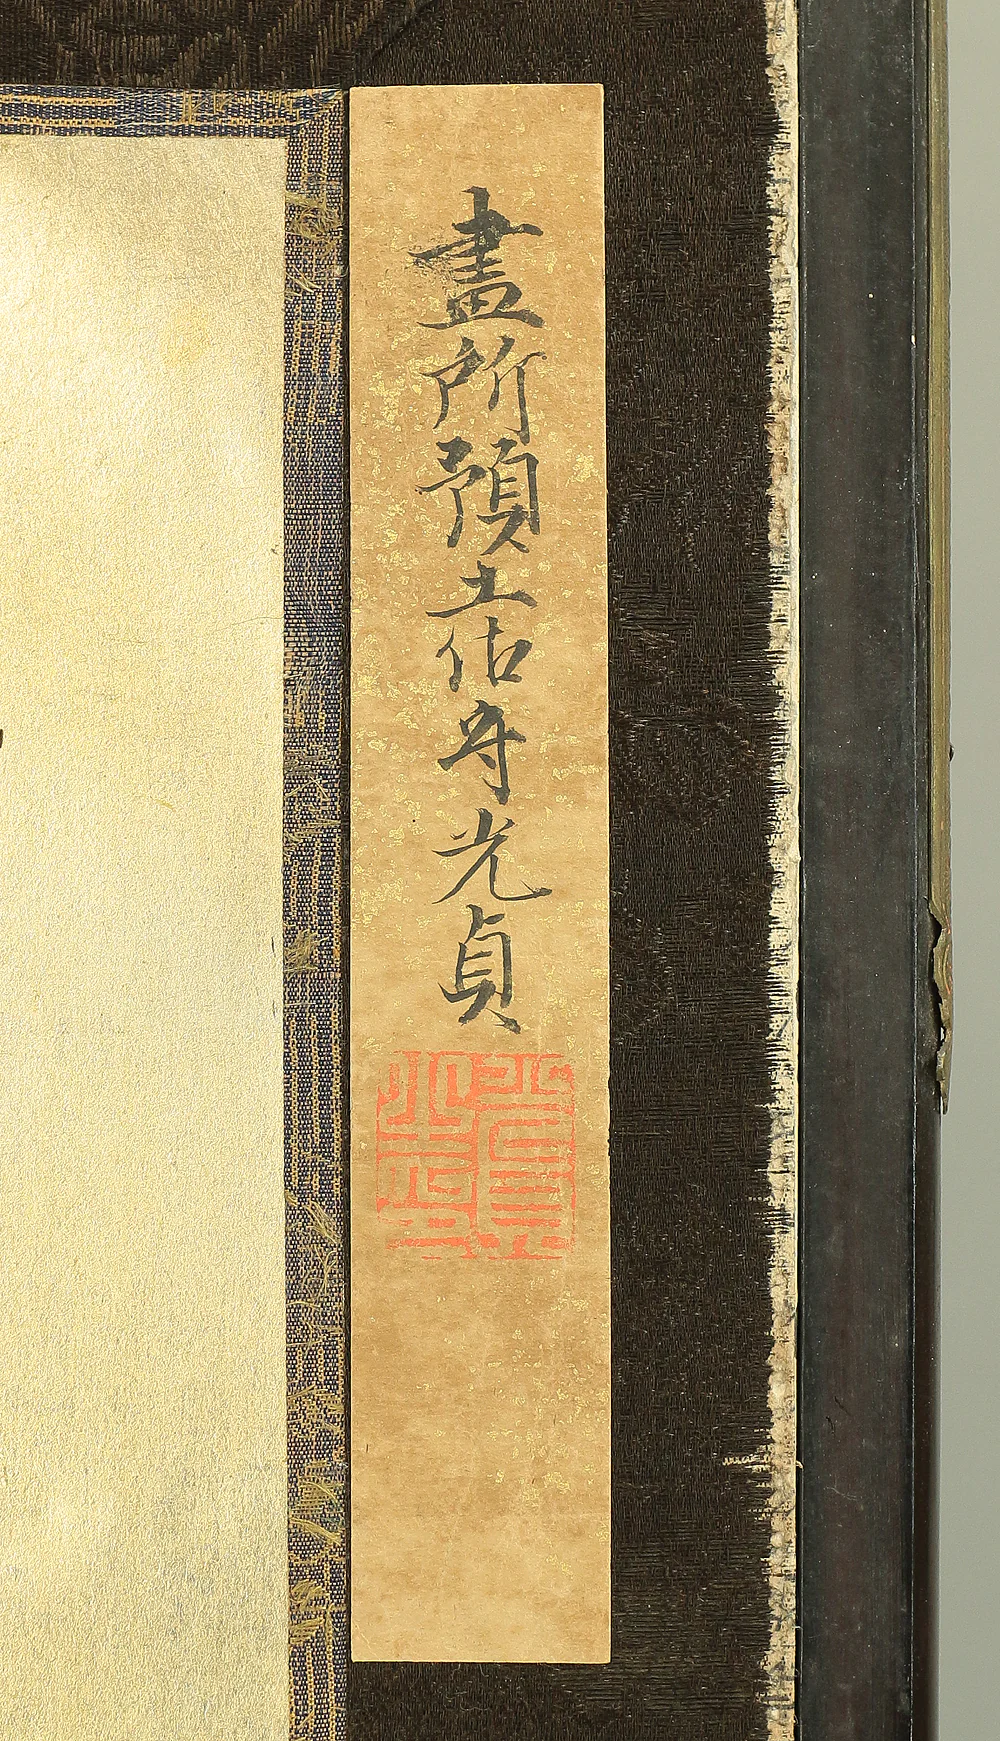 畫所預土佐守光貞